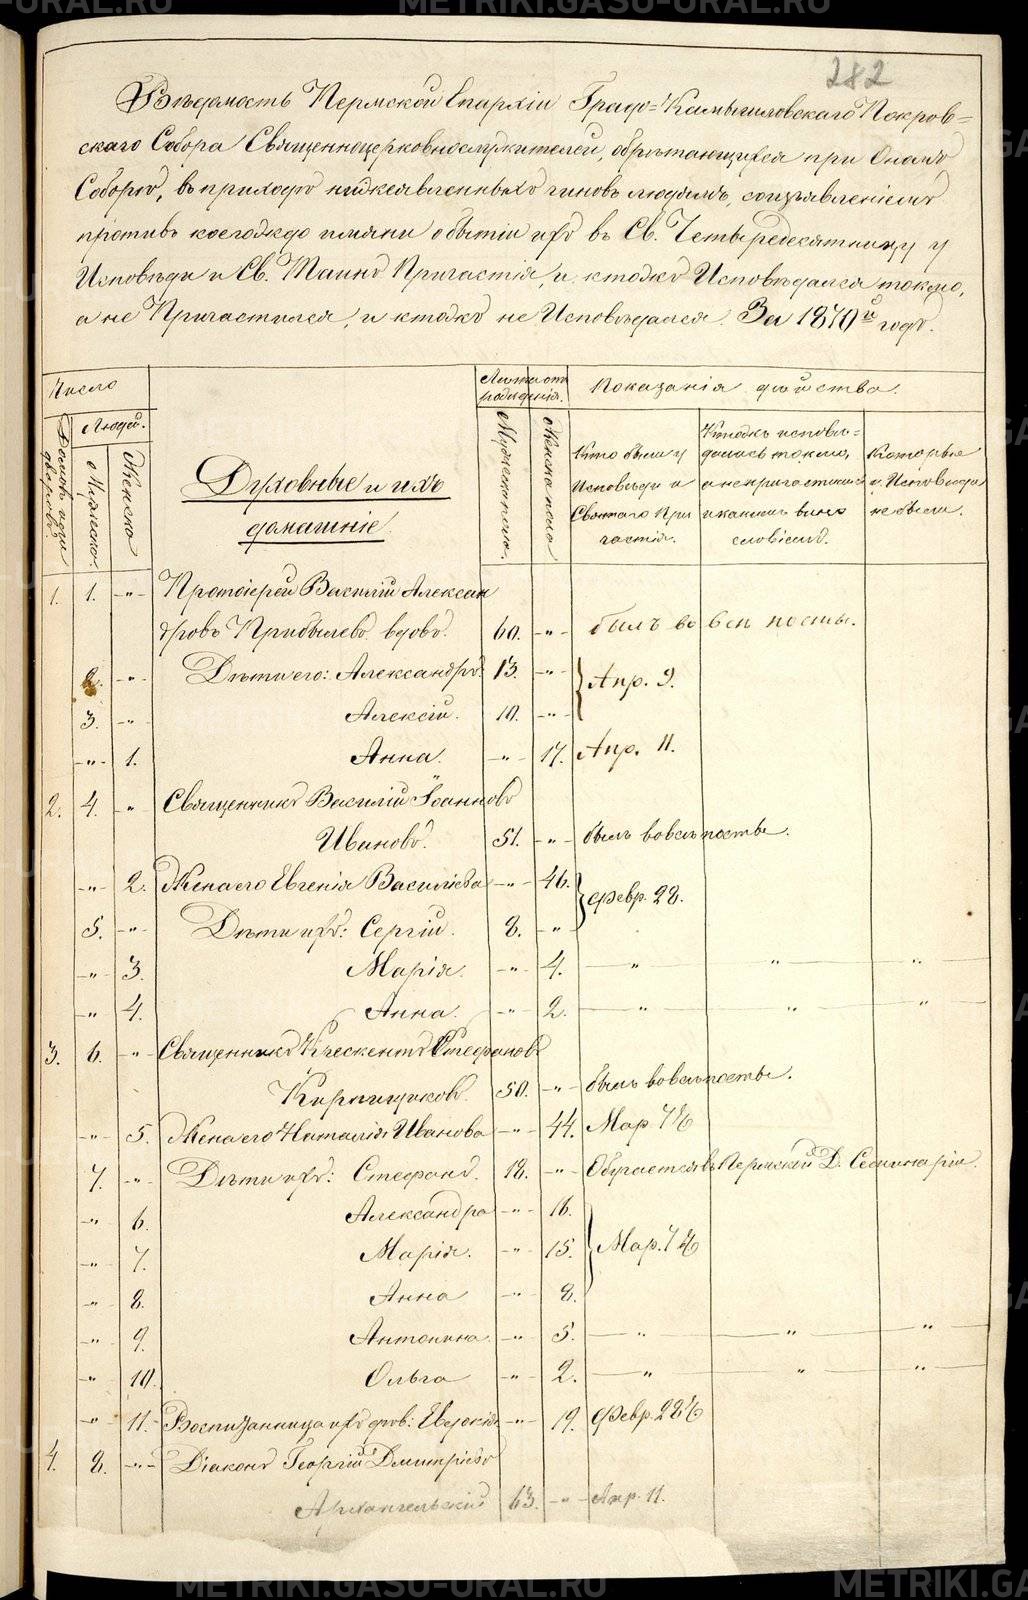 282
Вѣдомость Пермской Епархіи Градо=Камышловскаго Покров=
скаго Собора Священноцерковнослужителей, обрѣтающихся при Ономъ
Соборѣ, въ приходѣ нижеявленныхъ чиновъ людямъ, соизъявленіемъ
противъ коегождо имяни о бытіи ихъ въ Св. Четыредесятницу у
Исповѣди и Св. Таинъ Причастія, и ктожъ Исповѣдался токмо,
а не Причастился, и ктожъ не Исповѣдался. За 1870й годъ.
Число
Лѣта отъ рожденія.
Показанія дѣйства.
Домовъ или дворовъ.
Людей.
Мужеска.
Женска
Духовные и ихъ
домашніе.
Мужеска пола.
Женска пола
Кто были у Исповѣди и Святаго Причастія.
Ктожъ исповѣдались токмо, а не причастились и какимъ винословіемъ.
Которые у Исповѣди не были.
1. 1. -"- Протоіерей Василій Александ
ровъ Прибылевъ вдовъ. 60. -"- былъ во вси посты.
2. -"- Дѣти его: Александръ 13. -"- Апр. 9.
3. -"- Алексій. 10. -"-
-"- 1. Анна. -"- 17. Апр. 11.
2. 4. -"- Священникъ Василій Іоанновъ
Ивановъ. 51. -"- былъ во вси посты.
-"- 2. Жена его Евгенія Василіева -"- 46. Февр. 28.
5. -"- Дѣти ихъ: Сергій. 8. -"-
-"- 3. Марія. -"- 4. — " — " — "
-"- 4. Анна. -"- 2. — " — " — "
3. 6. -"- Священникъ Крескентъ Стефановъ
Кирпищиковъ. 50. -"- былъ во вси посты.
-"- 5. Жена его Наталія Иванова -"- 44. Мар 7го
7. -"- Дѣти ихъ: Стефанъ. 18. -"- Обучается въ Пермской Д. Семинаріи.
-"- 6. Александра -"- 16.
-"- 7. Марія. -"- 15. Мар. 7го
-"- 8. Анна -"- 8.
-"- 9. Антонина -"- 5. — " — " — "
-"- 10. Ольга -"- 2. — " — " — "
-"- 11. Воспитанница ихъ дѣв: Евдокія -"- 19. Февр. 28го
4. 8. -"- Діаконъ Георгій Димитріевъ
Архангельскій 63. -"- Апр. 11.
METRIKI.GASU-URAL.RU
METRIKI.GASU-URAL.RU